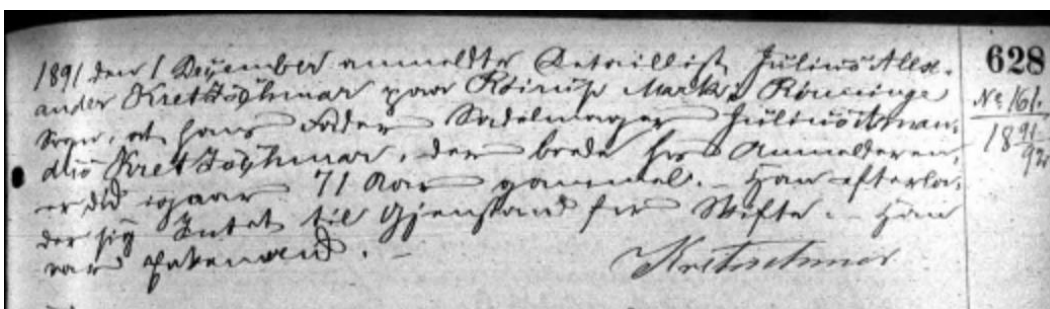 1891 den 1 December anmeldte Detaillist Julius Alex-
ander Kretzschmar paa Mark, Rønninge
Sogn, at hans Fader Sadelmager Julius
Kretzschmar, der boede hos Anmelderen,
er død igaar 71 Aar gammel. – Han efterla-
der sig Intet til Gjenstand for Skifte. – Han
var Enkemand. –
Kretschmer
628
No 161.
18 91/92